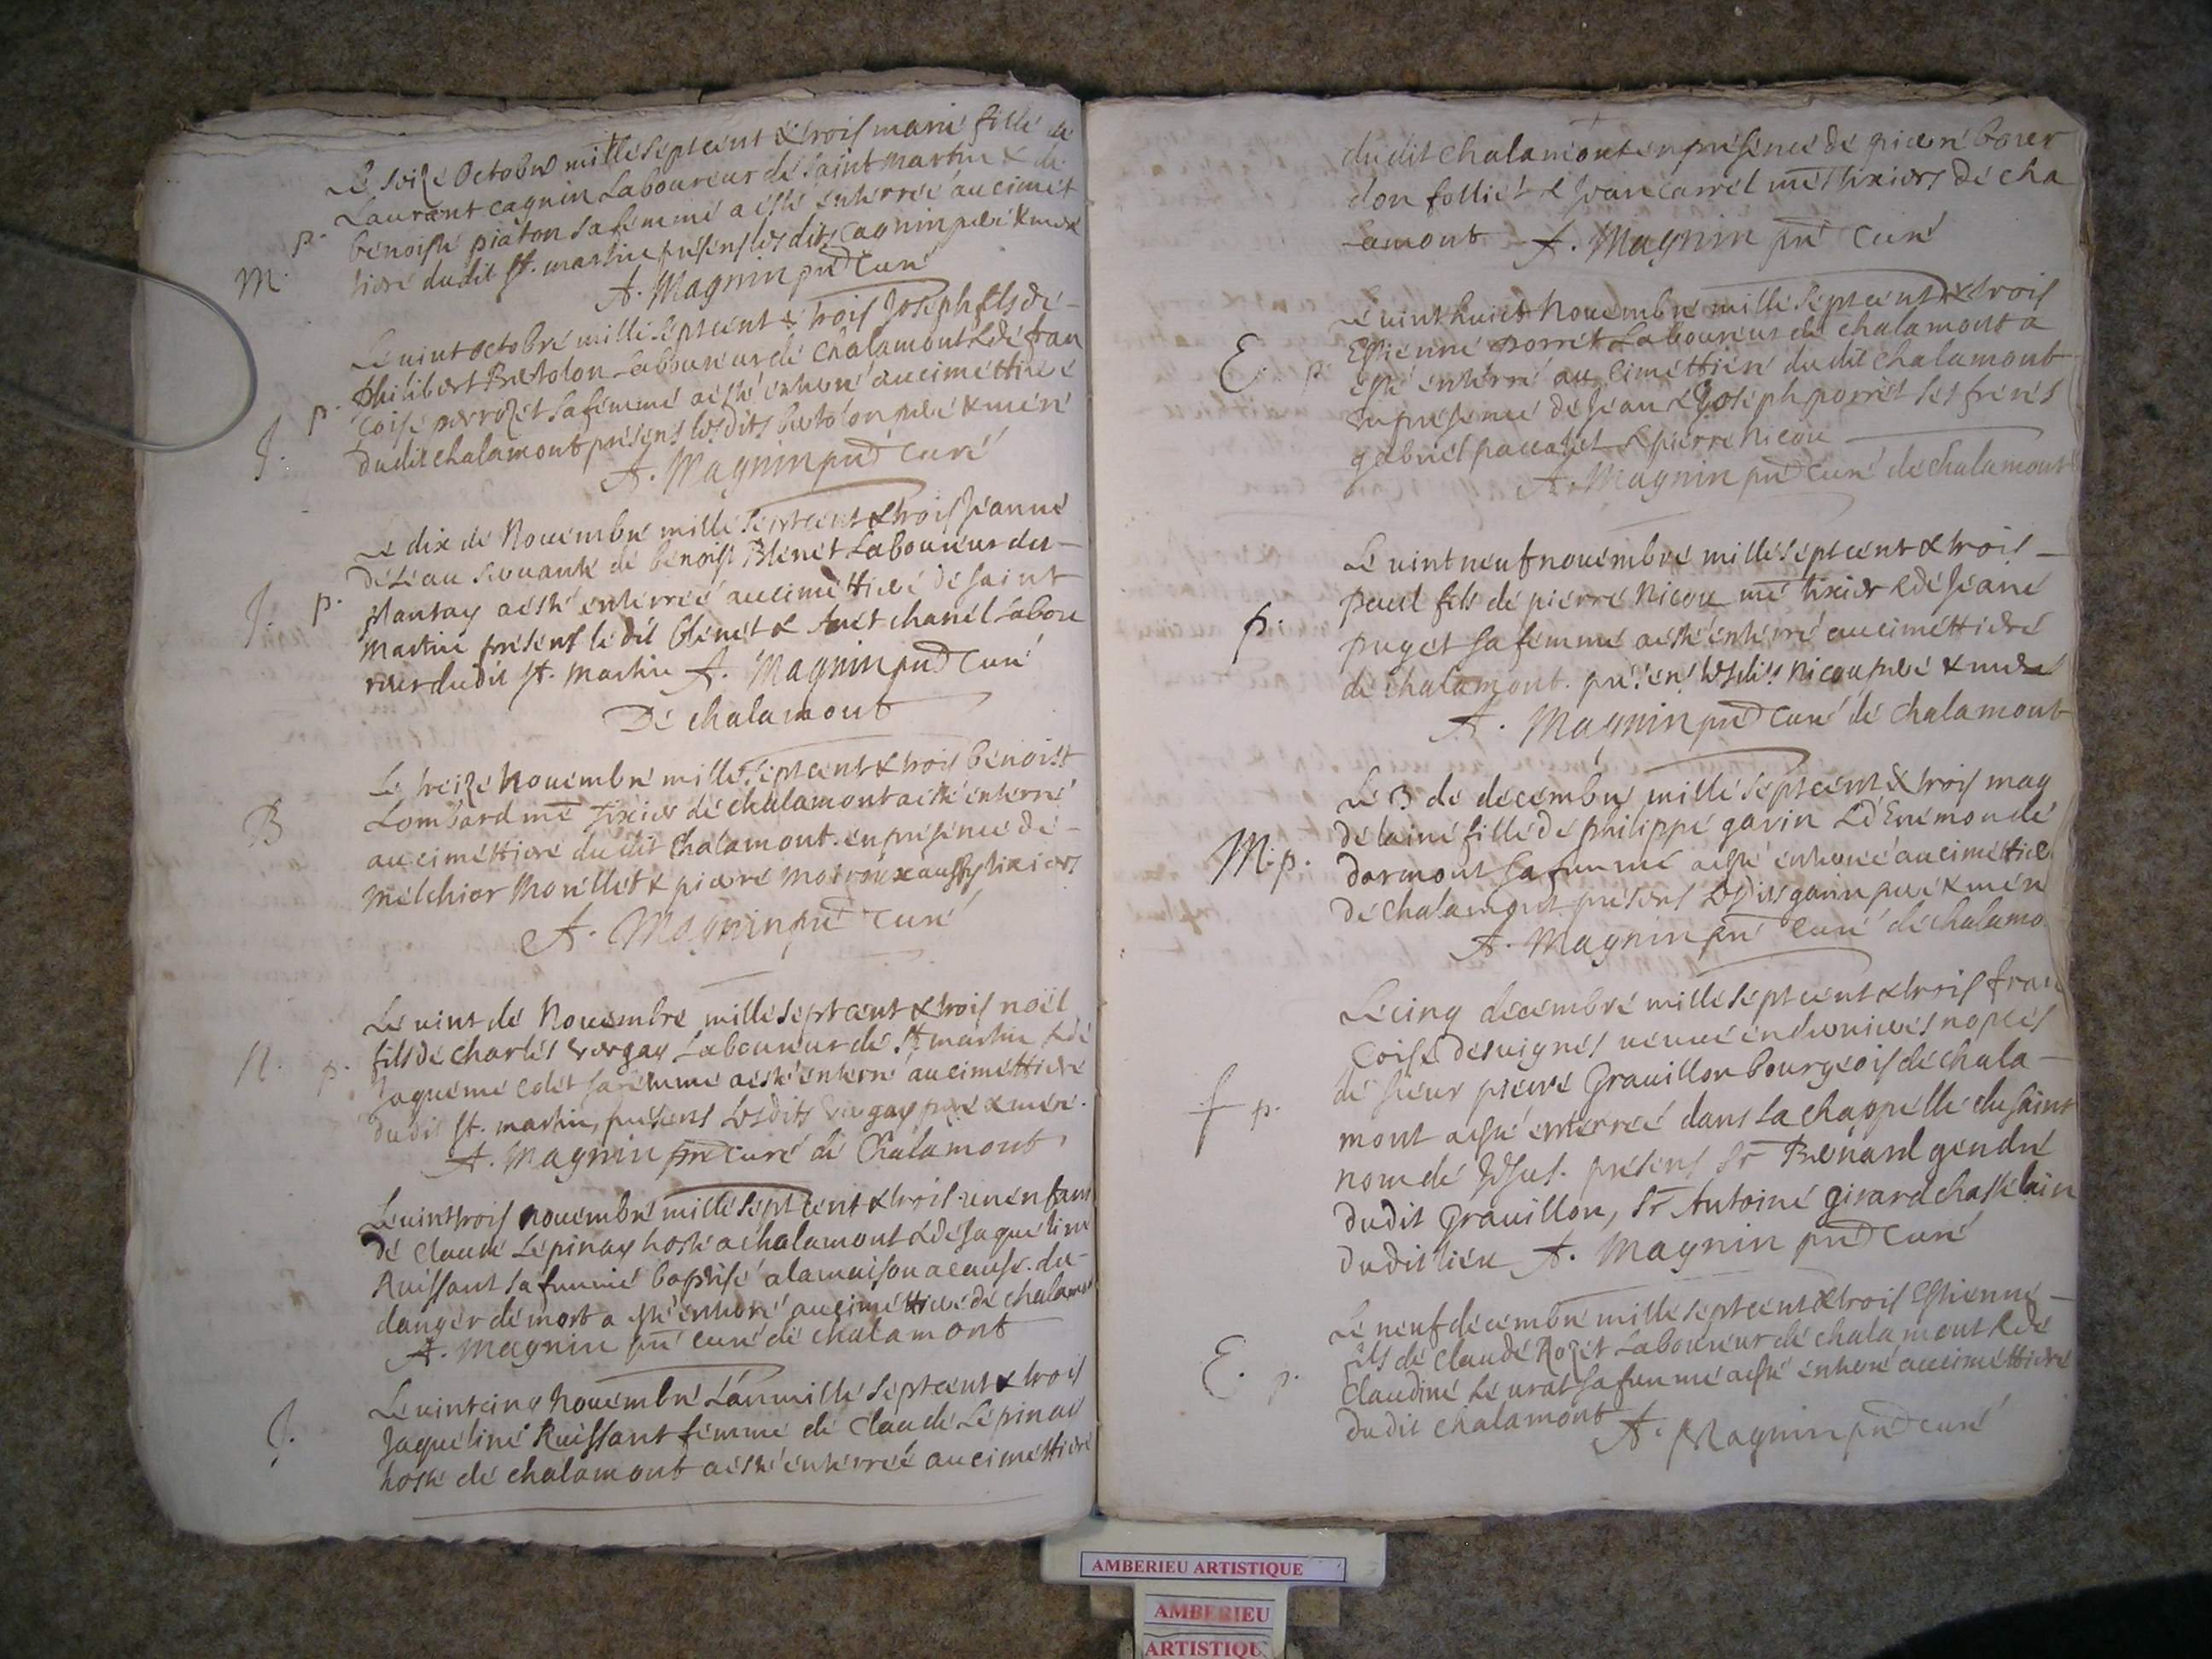 Le seize octobre mille sept cent & trois marie fille de
Laurant cagnin Laboureur de saint martin & de
p. benoiste piaton sa femme a esté enterreé au cimet
M. tiere dudit st. martin présens lesdits cagnin pere & mere
A. Magnin prê curé
Le vint octobre mille sept cent & trois Joseph fils de
philibert Bertolon Laboureur de chalamont & de fran
p. coise perrozet sa femme a esté enterré au cimettiere
J. dudit chalamont présens lesdits bertolon pere & mere
A. Magnin prê curé
Le dix de Novembre mille sept cent & trois Jeanne
servante de benoist Blenet Laboureur du
J. p. Mantay a esté enterreé au cimettiere de saint
martin présens le dit blenet & chanel Labou
reur dudit st. martin A. Magnin prê curé
De chalamont
Le treize Novembre mille sept cent & trois benoist
B Lombard mê Tixier de chalamont a esté enterré
au cimettiere dudit chalamont en présence de
melchior Morellet & pierre moiroux aussy tixiers
A. Magnin prê curé
Le vint de Novembre mille sept cent & trois noël
fils de charles vergay Laboureur de st martin & de
N. p. Jaqueme colet sa femme a esté enterré au cimettiere
dudit st. martin, présens lesdits vergay pere & mere.
A. Magnin prê curé de Chalamont
Le vint trois novembre mille sept cent & trois un enfant
de claude Lépinay hoste a chalamont & de Jaqueline
Ruissant sa femme baptisé a la maison a cause du
danger de mort a esté enterré au cimettiere de chalamont
A. Magnin prê curé de chalamont
Le vint cinq novembre L'an mille sept cent & trois
J. Jaqueline Ruissant femme de claude Lépinay
hoste de chalamont a esté enterreé au cimettiere
dudit chalamont en présence de pierre bour
don folliet & Jean carrel mês tixiers de cha
lamont A. Magnin prê curé
Le vint huict Novembre mille sept cent & trois
E. p. Estienne porret Laboureur de chalamont a
esté enterré au cimettiere dudit chalamont
en présence de Jean & Joseph porret ses freres
gabriel paccalet & pierre Nicou
A. Magnin prê curé de chalamont
Le vint neuf novembre mille sept cent & trois
paul fils de pierre Nicou mê tixier & de Jeane
p. puget sa femme a esté enterré au cimettiere
de chalamont. présens lesdits Nicou pere & mere
A. Magnin prê curé de chalamont
Le 3 de decembre mille sept cent & trois mag
delaine fille de philippe gavin & d'Enemonde
M. p. dormont sa femme a esté enterreé au cimettiere
de chalamont présens lesdits gavin pere & mere
A. Magnin prê curé de chalamo
Le cinq decembre mille sept cent & trois fran
coise desvignes veuve en dernieres nopces
f p. de sieur pierre Gravillon bourgeois de chala
mont a esté enterreé dans la chappelle du saint
nom de Jesus. présens sr Bernard gendre
dudit Gravillon, sr Antoine girard chastelain
dudit lieu A. Magnin prê curé
Le neuf decembre mille sept cent & trois Estienne
fils de claude Rozet Laboureur de chalamont & de
E. p. Claudine Levrat sa femme a esté enterré au cimettiere
dudit chalamont A. Magnin prê curé
AMBERIEU ARTISTIQUE
AMBERIEU
ARTISTIQU